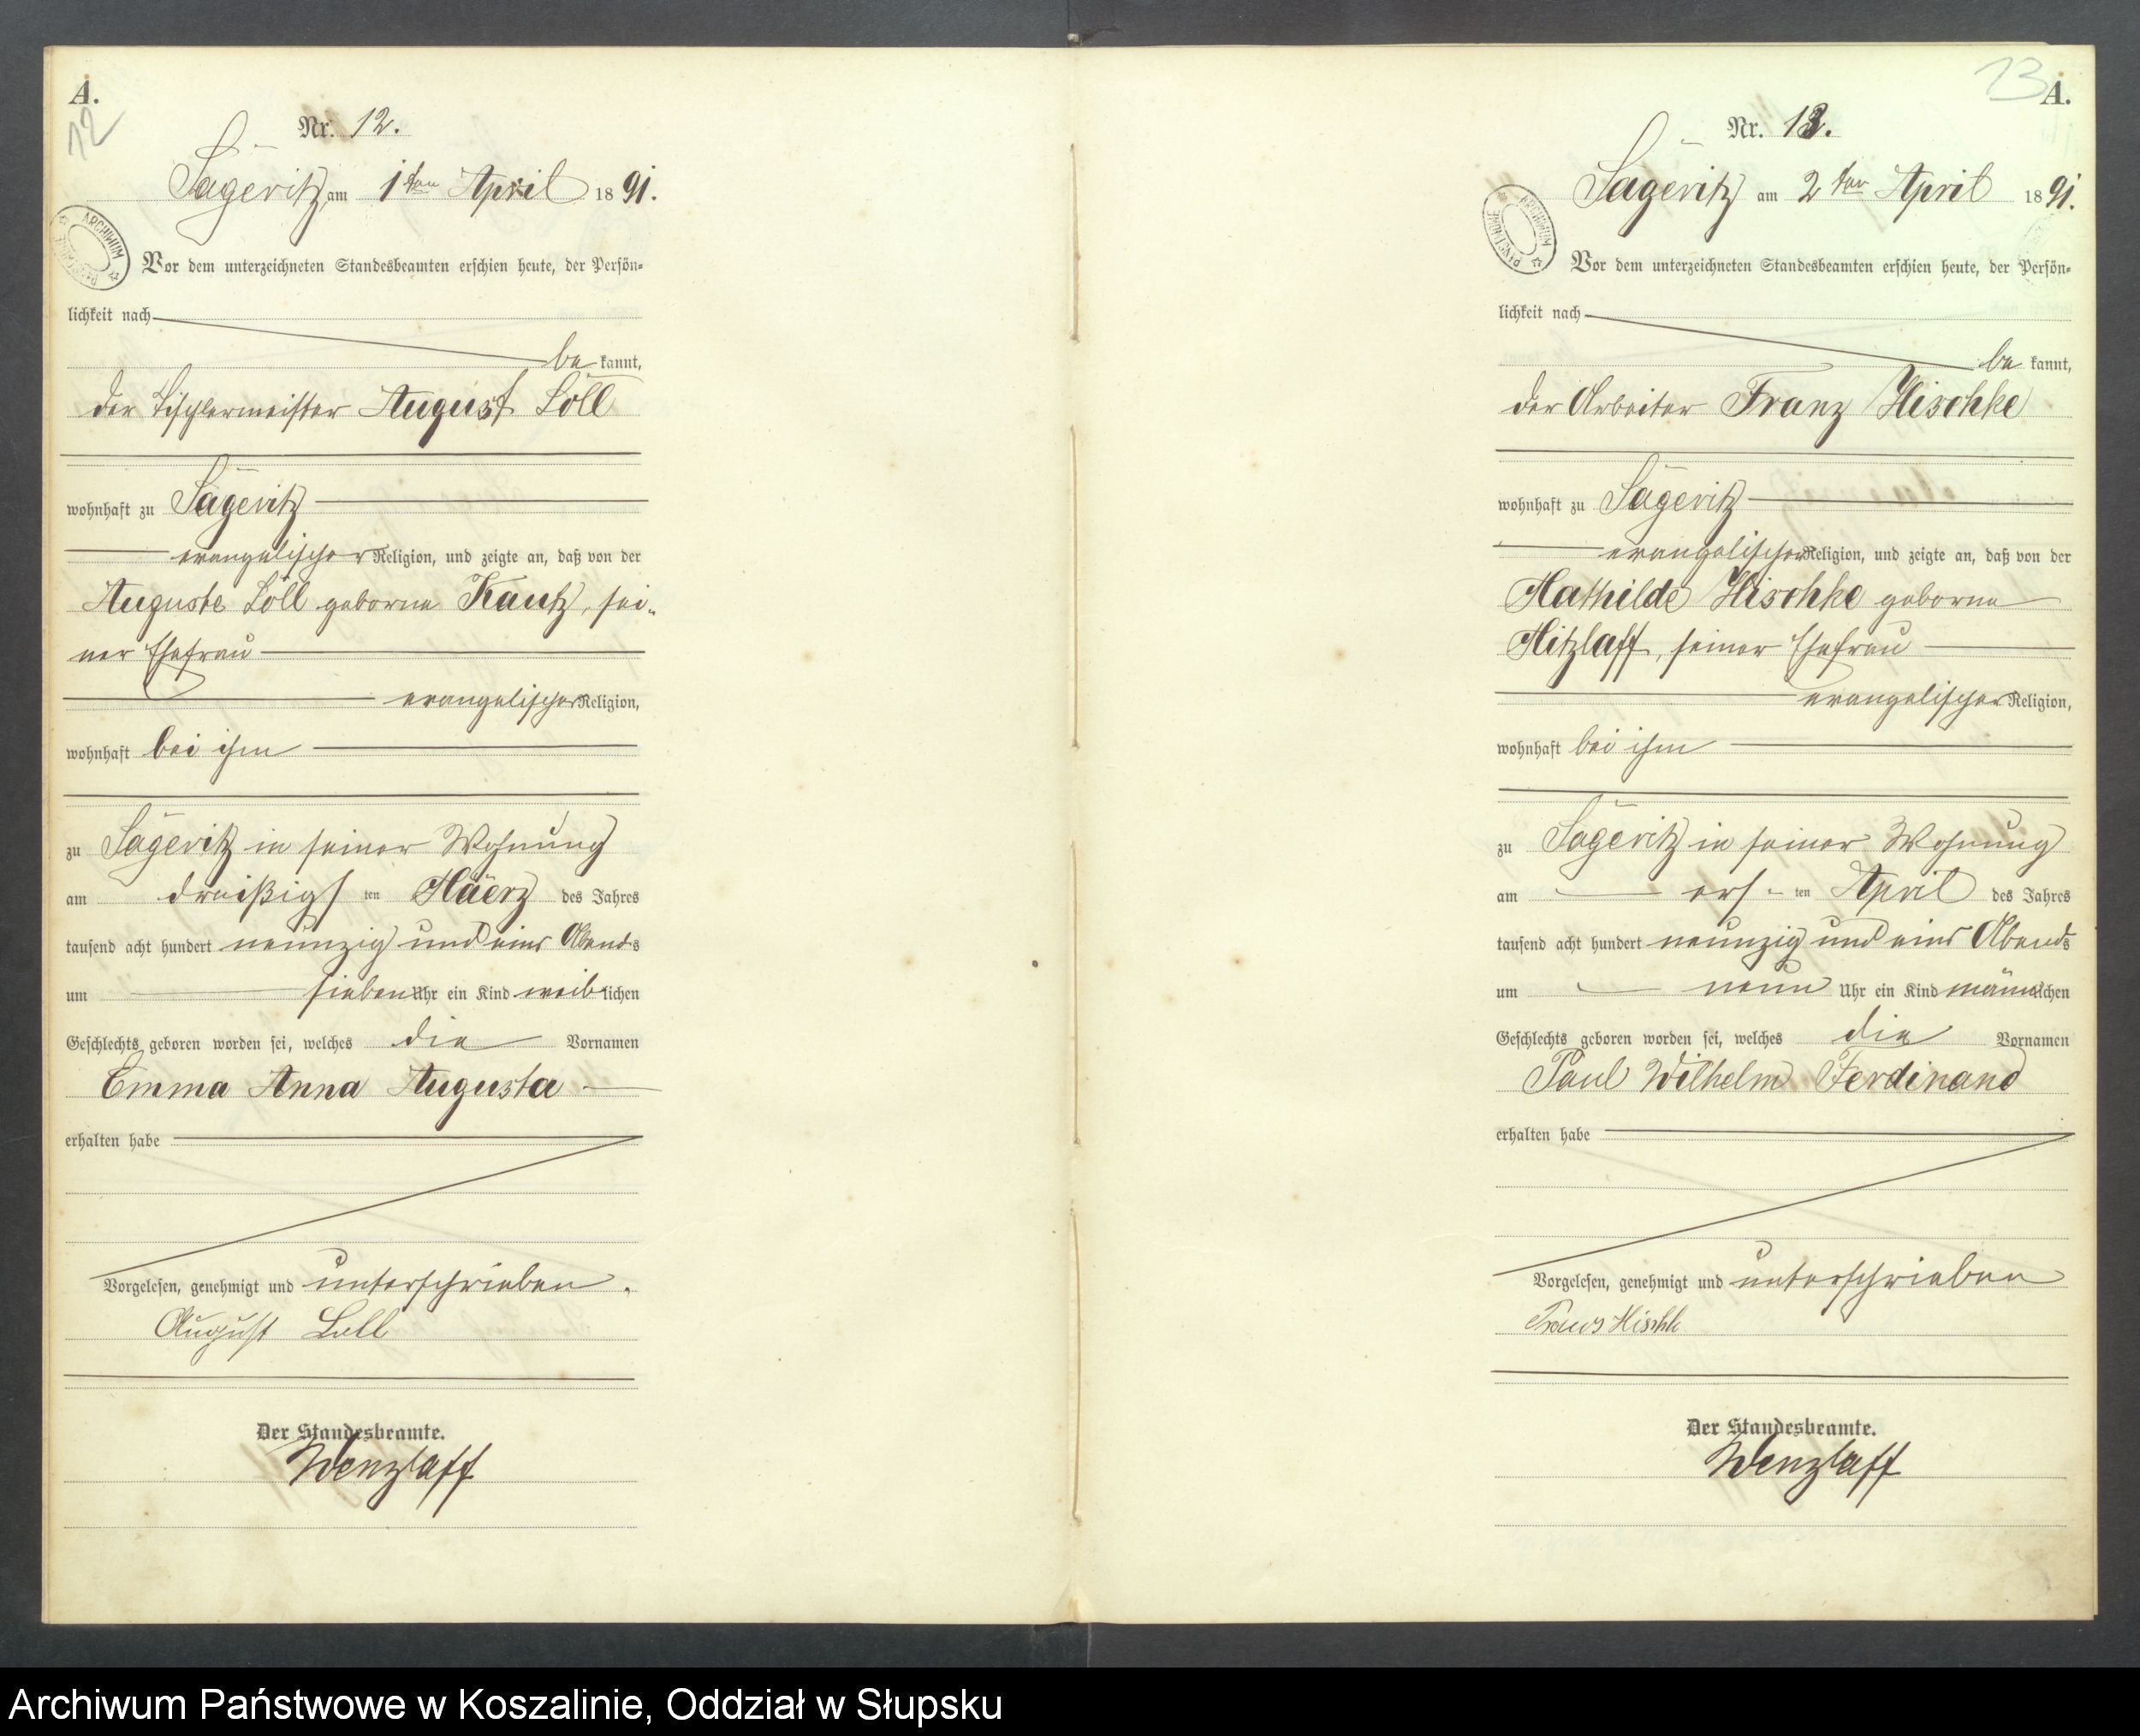 A.
12
Nr. 12.
Sägeritz, am 1ten April 1891.
Vor dem unterzeichneten Standesbeamten erschien heute, der Persön-
lichkeit nach
be kannt,
der Tischlermeister August Löll
wohnhaft zu Sägeritz
evangelischer Religion, und zeigte an, daß von der
Auguste Löll geborne Kautz, sei-
ner Ehefrau
evangelischer Religion,
wohnhaft bei ihm
zu Sägeritz in seiner Wohnung
am dreißigsten Määrz des Jahres
tausend acht hundert neunzig und eins Abends
um sieben Uhr ein Kind weiblichen
Geschlechts geboren worden sei, welches die Vornamen
Emma Anna Augusta
erhalten habe
Vorgelesen, genehmigt und unterschrieben.
August Löll
Der Standesbeamte.
Wenzlaff
13
A.
Nr. 13.
Sägeritz am 2ten April 1891.
Vor dem unterzeichneten Standesbeamten erschien heute, der Persön-
lichkeit nach
be kannt,
der Arbeiter Franz Mischke
wohnhaft zu Sägeritz
evangelischer Religion, und zeigte an, daß von der
Mathilde Mischke geborne
Mitzlaff, seiner Ehefrau
evangelischer Religion,
wohnhaft bei ihm
zu Sägeritz in seiner Wohnung
am ersten April des Jahres
tausend acht hundert neunzig und eins Abends
um neun Uhr ein Kind männlichen
Geschlechts geboren worden sei, welches die Vornamen
Paul Wilhelm Ferdinand
erhalten habe
Vorgelesen, genehmigt und unterschrieben
Franz Mischke
Der Standesbeamte.
Wenzlaff
Archiwum Państwowe w Koszalinie, Oddział w Słupsku